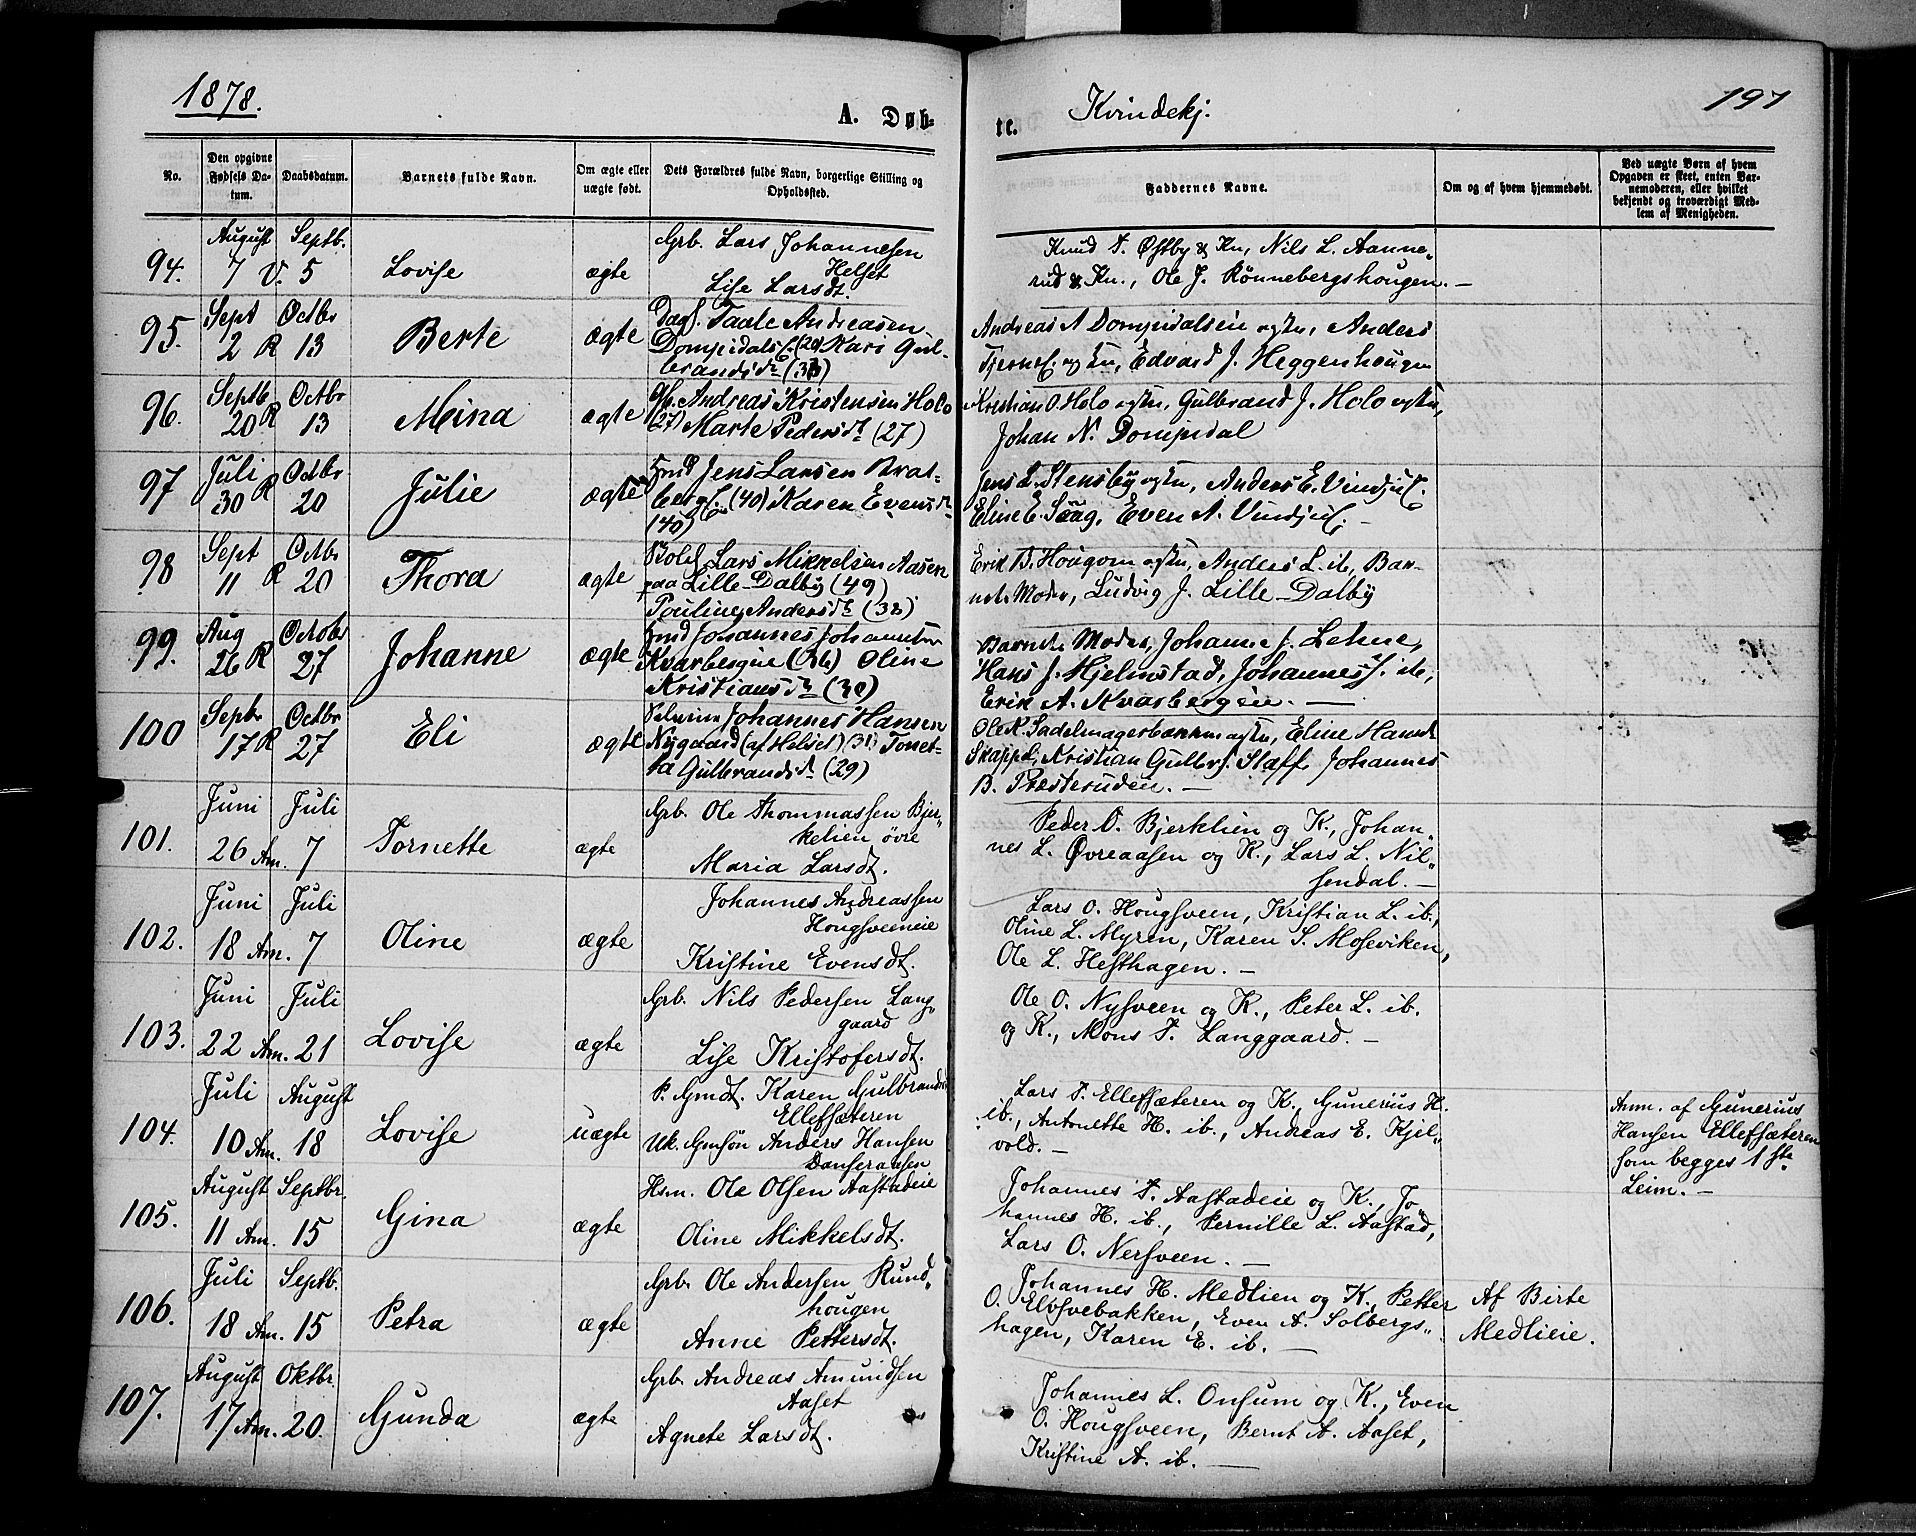 1878.
A. Døb-
te.
Kvindekj.
197
No.
Den opgivne Fødsels Da-tum.
Daabsdatum.
Barnets fulde Navn.
Om ægte eller uægte født.
Dets Forældres fulde Navn, borgerlige Stilling og Opholdssted.
Faddernes Navne.
Om og af hvem hjemmedøbt.
Ved uægte Børn af hvem Opgaven er skeet, enten Bar-nemoderen, eller hvilket bekjendt og troværdigt Med-lem af Menigheden.
August Septb.
94. 7 V. 5 Lovise ægte
Grb. Lars Johannesen
Helset
Lise Larsdt.
Knud T. Østby & Kn, Nils L. Aanne-
rud & Kn., Ole J. Rönnebergshougen. -
Sept Octbr
95. 2 R 13 Berte ægte
Dagl. Taale Andreasen
Dompidals (20) Kari Gul-
brandsdr (33)
Andreas A Dompidalseie ogKn, Anders
ogKn, Edvard J. Heggenhougen
Septb Octbr
96. 20 R 13 Mina ægte
Gb. Andreas Kristensen Holo
(27) Marte Pedersdr (27)
Kristian O. Holo ogKn, Gulbrand J. Holo ogKn,
Johan N. Dompidal
Juli Octbr
97 30 R 20 Julie ægte
Hmd Jens Larsen Brat-
berg (40) Karen Evensdr
(40)
Jens L. Stensby ogKn, Anders E. Vindju
Eline E. Saag, Even A. Vindju -
Sept Octbr
98 11 R 20 Thora ægte
Lars Mikkelsen Aasen
paa Lille-Dalby (49)
Pouline Andersdr (38)
Erik B. Hougom ogKn, Anders L. ib, Bar-
nets Moder, Ludvig J. Lille-Dalby
Aug Octobr
99. 26 R 27 Johanne ægte
Hmd Johannes Johannesen
Kvarbergeie (36) Oline
Kristiansdr (30)
Barnets Moder, Johanne J. Lehne,
Hans J. Hjelmstad, Johannes J. ib,
Erik A. Kvarbergeie. -
Septbr Octbr
100 17 R 27 Eli ægte
Selveier Johannes Hansen
Nygaard (af Helset) (31) Tonet-
ta Gulbrandsdr (29)
Ole K. Sadelmagerbakken ogKn, Eline Hansdr
Skappel, Kristian Gulbr. Staff Johannes
B. Præsterudeie. -
Juni Juli
101. 26 Am. 7 Tornette ægte
Grb. Ole Thommassen Bjer-
kelien øvre
Maria Larsdt.
Peder O. Bjerklien og K., Johan-
nes L. Øvreaasen og K., Lars L. Nil-
sendal. -
Juni Juli
102. 18 Am. 7 Oline ægte
Johannes Andreassen
Hougsveeneie
Kristine Evensdt.
Lars O. Hougsveen, Kristian L. ib.,
Oline L. Myren, Karen S. Moseviken,
Ole L. Hesthagen. -
Juni Juli
103. 22 Am. 21 Lovise ægte
Grb. Nils Pedersen Lang-
gaard
Lise Kristofersdt.
Ole O. Nysveen og K., Peter L. ib.
og K., Mons P. Langgaard. -
Juli August
104. 10 Am. 18 Lovise uægte
P. Gmdt. Karen Gulbrandsd
Ellefsæteren
Uk. Gmsön Anders Hansen
Danseraasen
Lars P. Ellefsæteren og K., Gunerius H.
ib., Antonette H. ib., Andreas E. Kjel-
vold. -
Anm. af Gunerius
Hansen Ellefsæteren
som begges 1ste
Leim. -
August Septbr.
105. 11 Am. 15 Gina ægte
Hsm. Ole Olsen Aastadeie
Oline Mikkelsdt.
Johannes P. Aastadeie og K., Jo-
hannes H. ib., Pernille L. Aastad,
Lars O. Nersveen. -
Juli Septb.
106. 18 Am. 15 Petra ægte
Grb. Ole Andersen Rund-
hougen
Anne Pettersdt.
Johannes H. Medlien og K., Petter
O. Elvsvebakken, Even A. Solbergs-
hagen, Karen E. ib. -
Af Birte
Medlieie.
August Oktbr.
107. 17 Am. 20. Gunda ægte
Grb. Andreas Amundsen
Aaset
Agnete Larsdt.
Johannes L. Onsum og K., Even
O. Hougsveen, Bernt A. Aaset,
Kristine A. ib. -